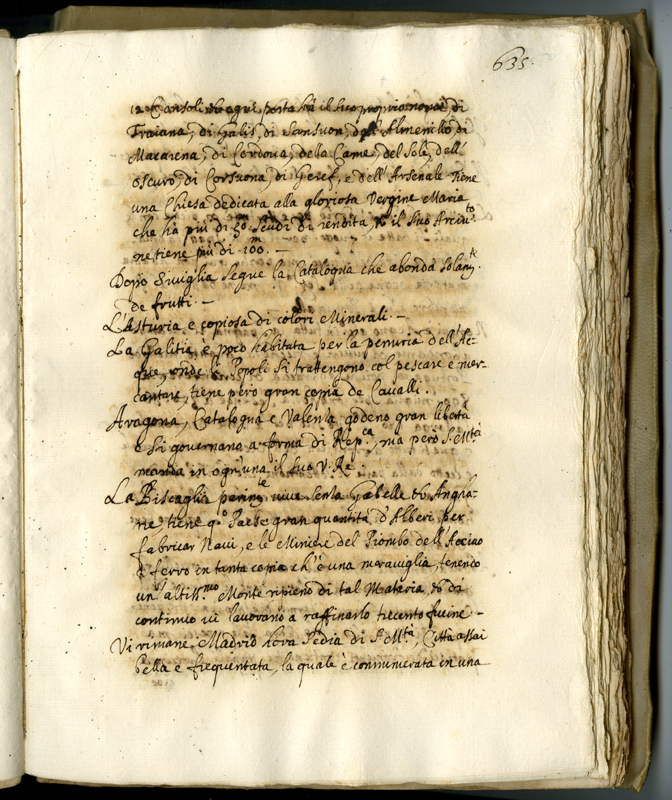 635.
12 Consoli ed ogni porta hà il suo proprio nome di
Traiana, di Galis, di Sansuon, dell' Almenillo, di
Macarena, di Cordova, della Carne, del Sole, dell'
oscuro, di Corsuona, di Geref, e dell' Arsenale tiene
una Chiesa dedicata alla gloriosa Vergine Maria
che ha più di 50.m Scudi di rendita, et il suo Arciu.to
ne tiene più di 100.m —
Doppo Siviglia segue la Catalogna che abonda solam.te
de frutti. —
L'Asturia e copiosa di colori e Minerali. —
La Galitia è poco habitata per la penuria dell'Ac-
que, onde li Popoli si trattengono col pescare e mer-
cantare, tiene però gran copia de Cavalli.
Aragona, Catalogna e Valenza godeno gran libertà
e si governano a forma di Rep.ca, ma però S. M.tà
manda in ogn'una il suo V. Re.
La Biscaglia parim.te vive senza Gabelle et Angha-
rie tiene q.o Paese gran quantità d'Alberi per
fabricar Navi, e le Miniere del Piombo dell'Acciaio
e ferro in tanta copia ch'è una meraviglia, tenendo
un'altiss.mo Monte ripieno di tal Materia, et di
continuo vi lavorano a raffinarlo trecento fucine —
Vi rimane Madrid hora Sedia di S. M.tà, Città assai
bella e frequentata, la quale è connumerata in una